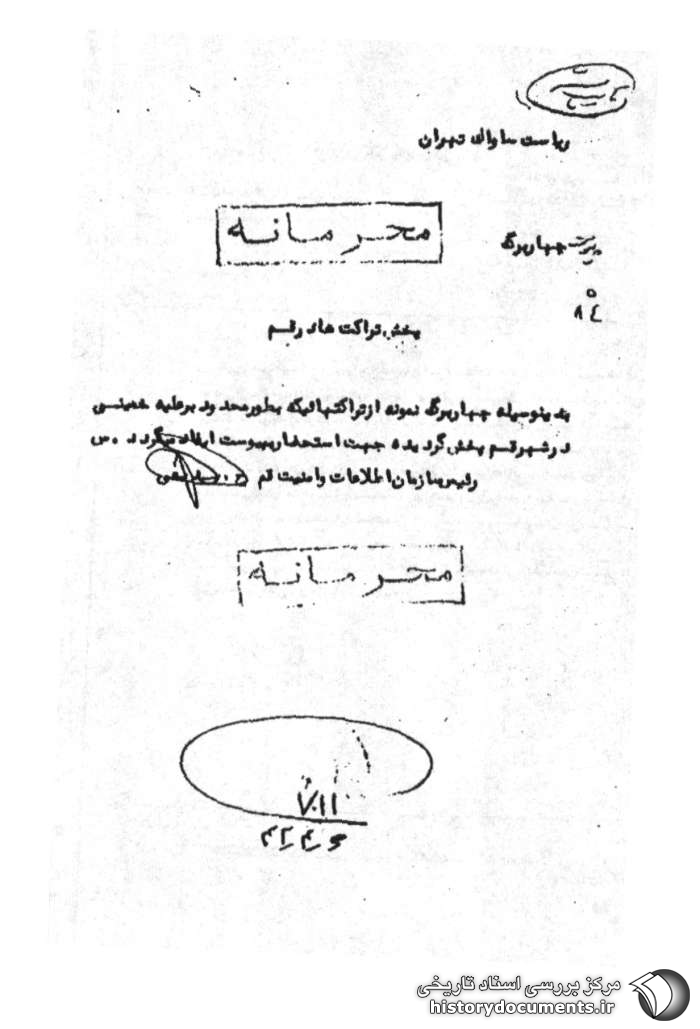 ریاست ساواک تهران
محرمانه
پیوست چهار برگ
۵
۸٤
پخش تراکت های در قم
بدینوسیله چهار برگ نمونه از تراکتهائیکه بطور محدود بر علیه خمینی
در شهر قم پخش گردیده جهت استحضار بپیوست ایفاد میگردد. س
رئیس سازمان اطلاعات و امنیت قم
محرمانه
مرکز بررسی اسناد تاریخی
historydocuments.ir